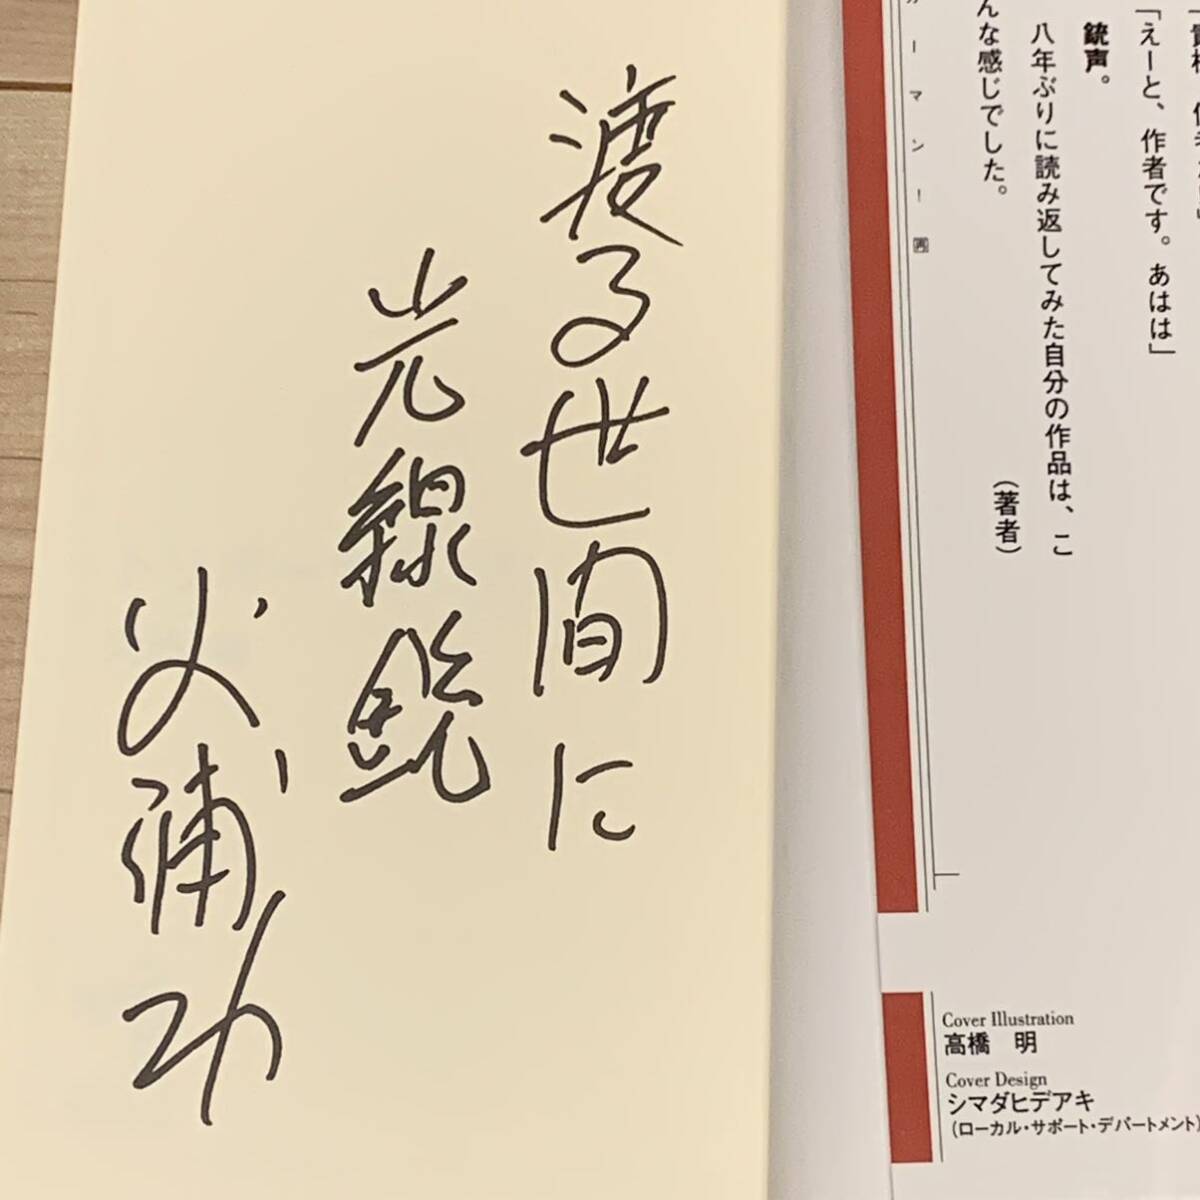 「えーと、作者です。あはは」
銃声。
八年ぶりに読み返してみた自分の作品は、こ
んな感じでした。
(著者)
ーマン!
Cover Illustration
高橋 明
Cover Design
シマダヒデアキ
(ローカル・サポート・デパートメント)
渡る世間に
光線銃
火浦功